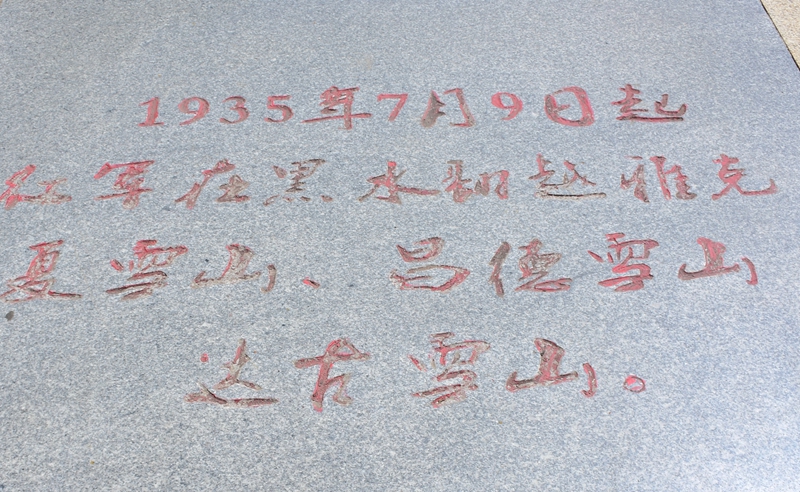 1935年7月9日起
红军在黑水翻越雅克
夏雪山、昌德雪山
达古雪山。